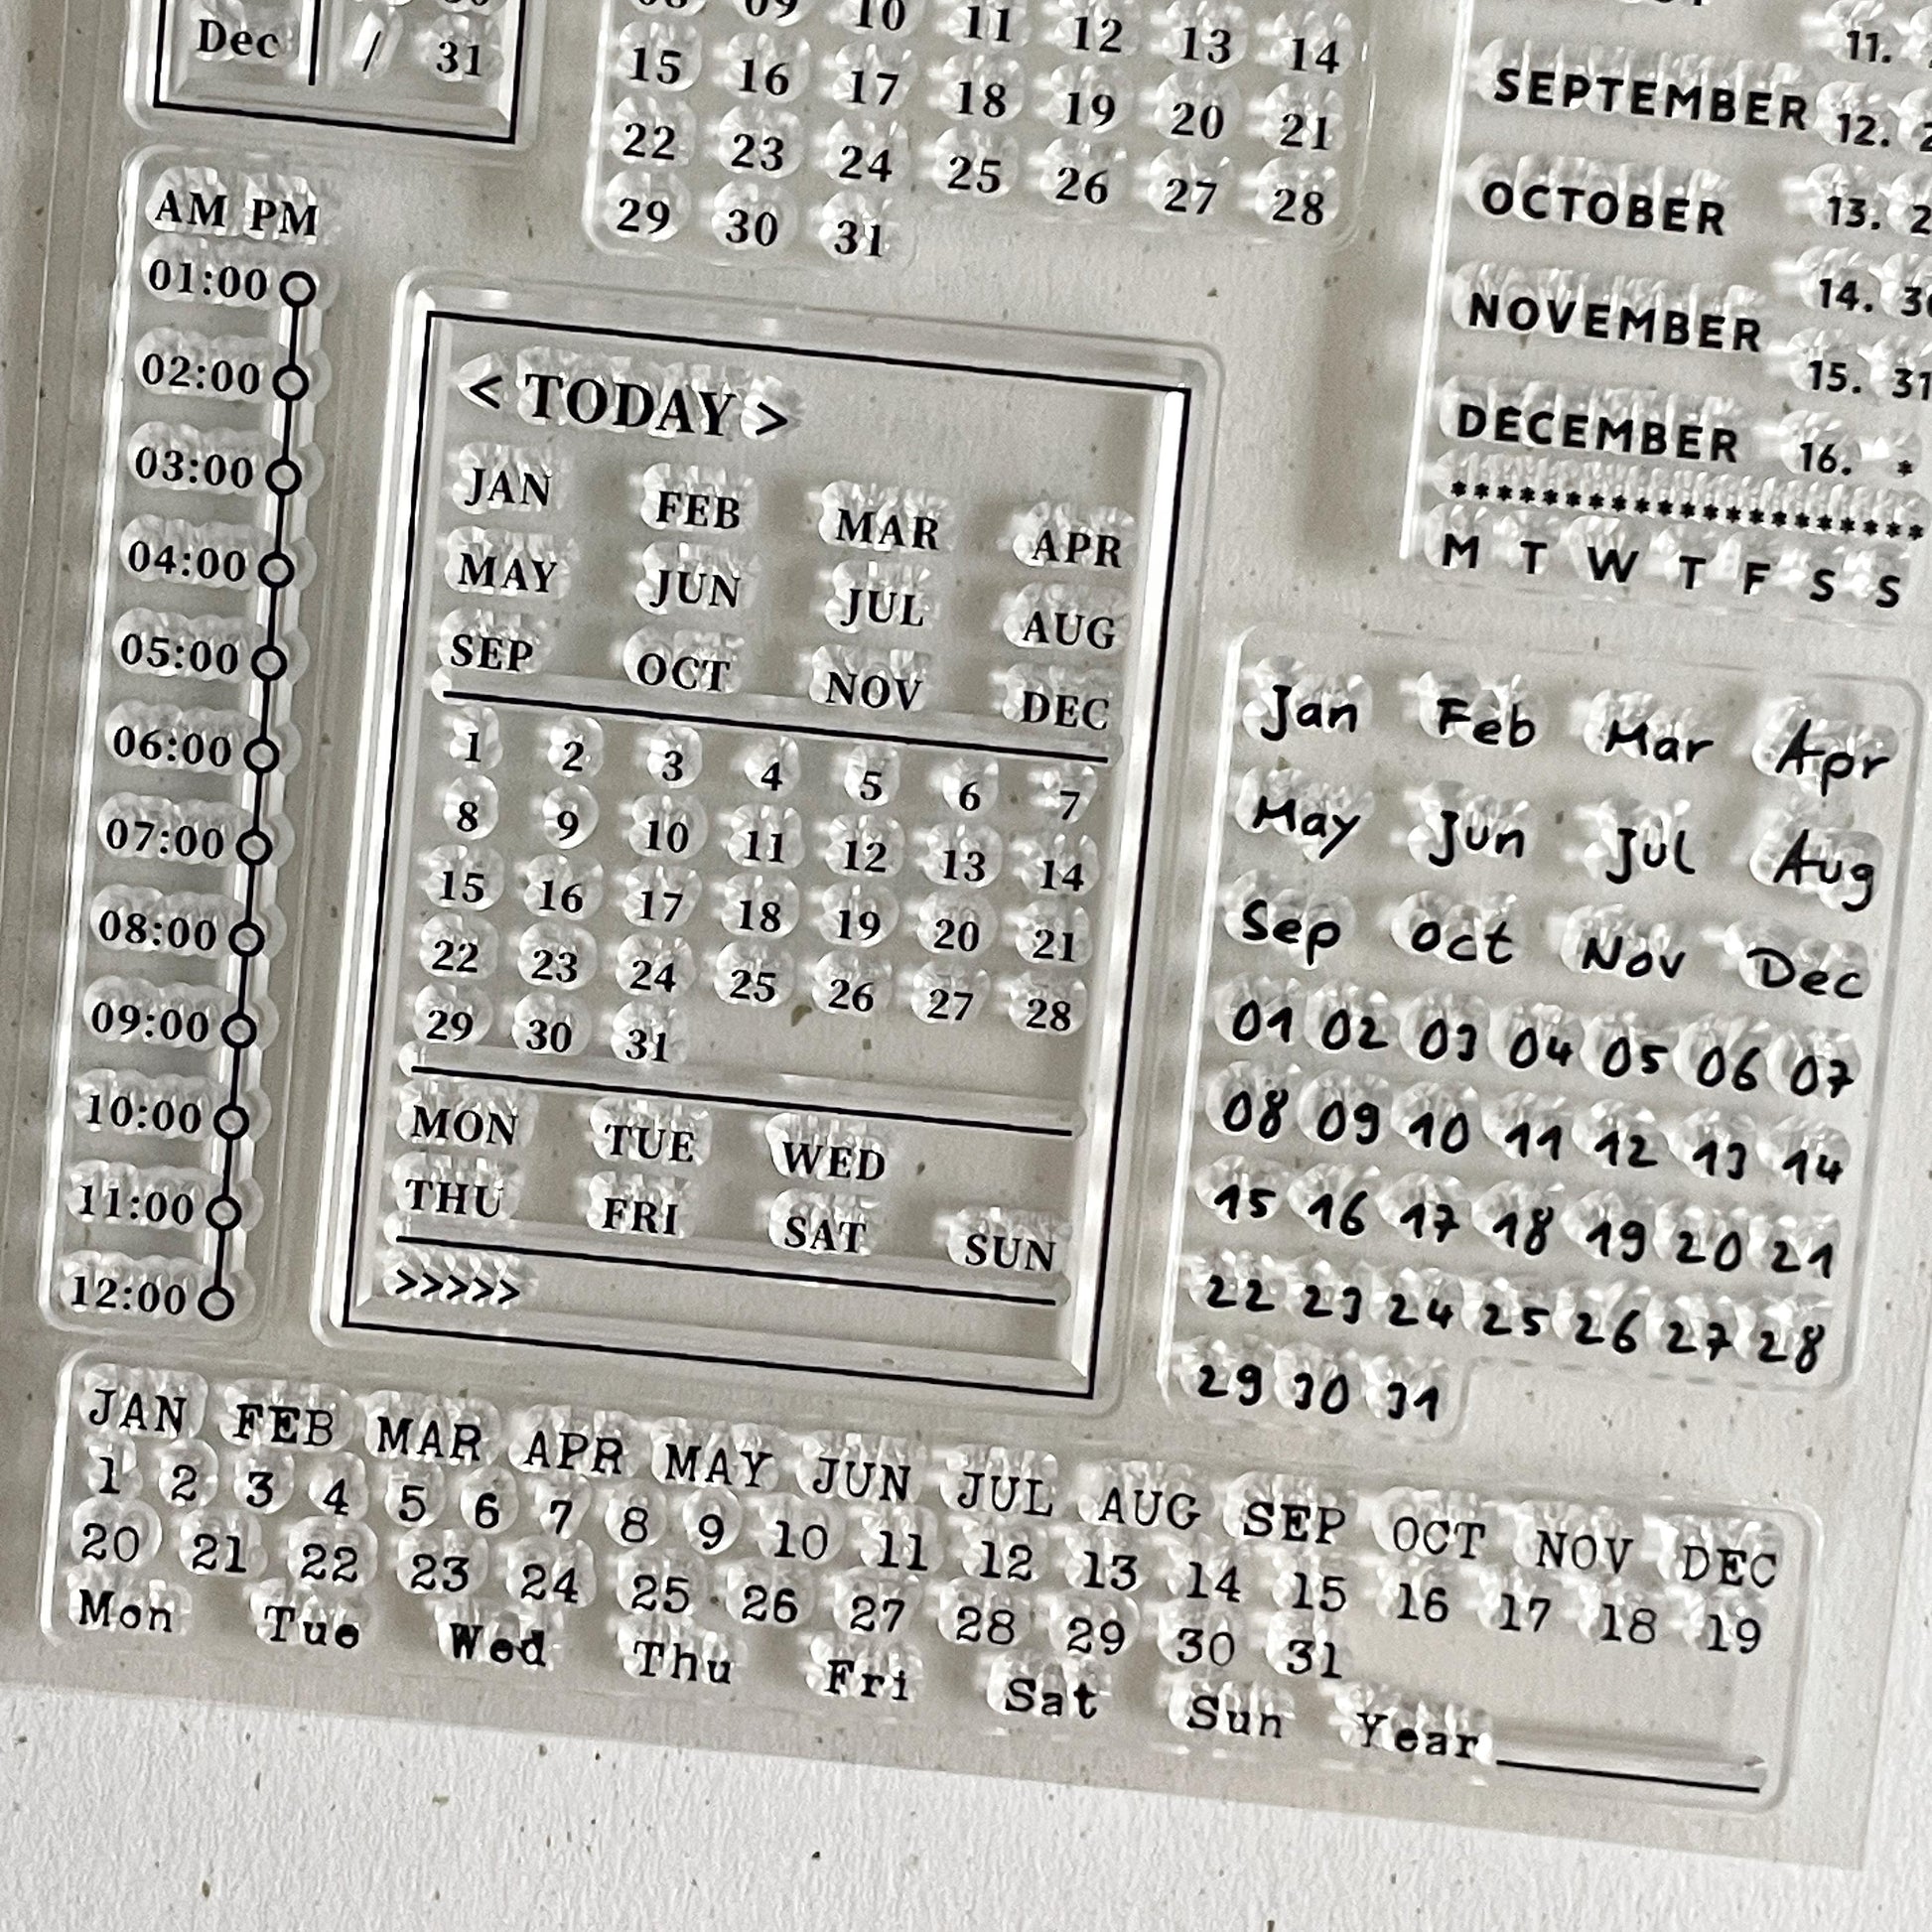 Dec / 31
08 09 10 11 12 13 14
15 16 17 18 19 20 21
22 23 24 25 26 27 28
29 30 31
11.
SEPTEMBER 12.
OCTOBER 13.
NOVEMBER 14.
15. 31
DECEMBER 16. *
********************
M T W T F S S
AM PM
01:00
02:00
03:00
04:00
05:00
06:00
07:00
08:00
09:00
10:00
11:00
12:00
< TODAY >
JAN FEB MAR APR
MAY JUN JUL AUG
SEP OCT NOV DEC
1 2 3 4 5 6 7
8 9 10 11 12 13 14
15 16 17 18 19 20 21
22 23 24 25 26 27 28
29 30 31
MON TUE WED
THU FRI SAT SUN
>>>>>
Jan Feb Mar Apr
May Jun Jul Aug
Sep Oct Nov Dec
01 02 03 04 05 06 07
08 09 10 11 12 13 14
15 16 17 18 19 20 21
22 23 24 25 26 27 28
29 30 31
JAN FEB MAR APR MAY JUN JUL AUG SEP OCT NOV DEC
1 2 3 4 5 6 7 8 9 10 11 12 13 14 15 16 17 18 19
20 21 22 23 24 25 26 27 28 29 30 31
Mon Tue Wed Thu Fri Sat Sun Year